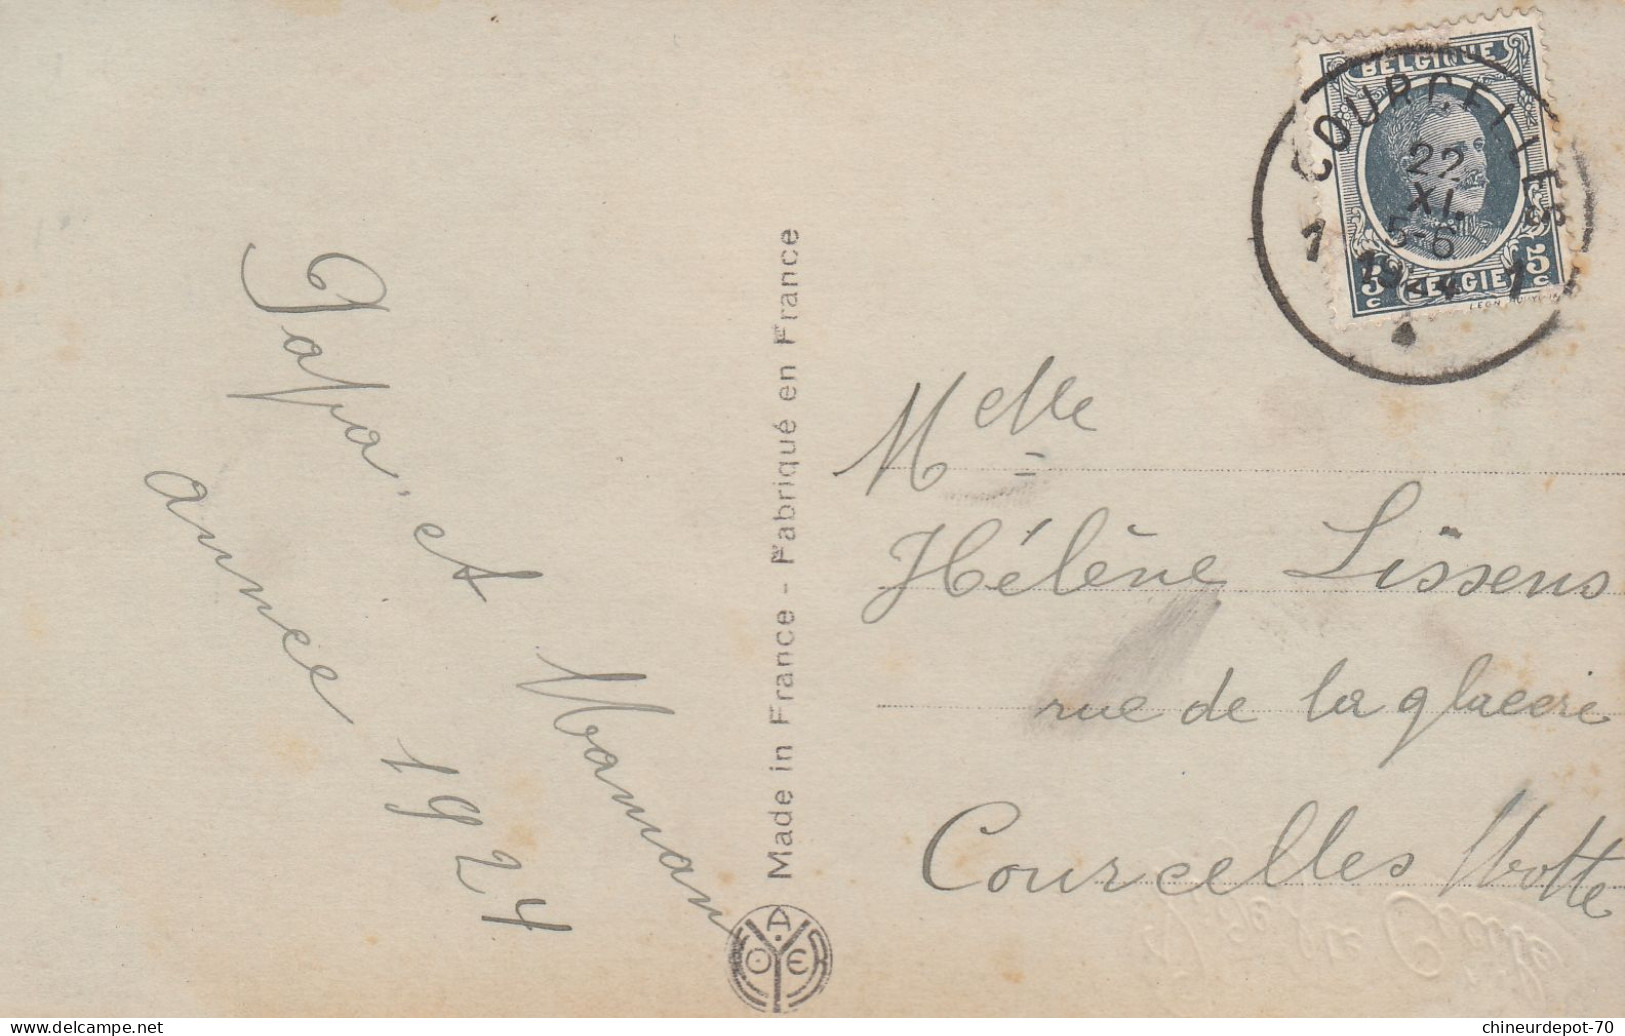 Papa et Maman
année 1924
Made in France - Fabriqué en France
BELGIQUE
COURCELLES
22
XI.
5-6
1 1924 1
5c BELGIE 5c
Melle
Hélène Lissens
rue de la glacerie
Courcelles Motte
www.delcampe.net
chineurdepot-70